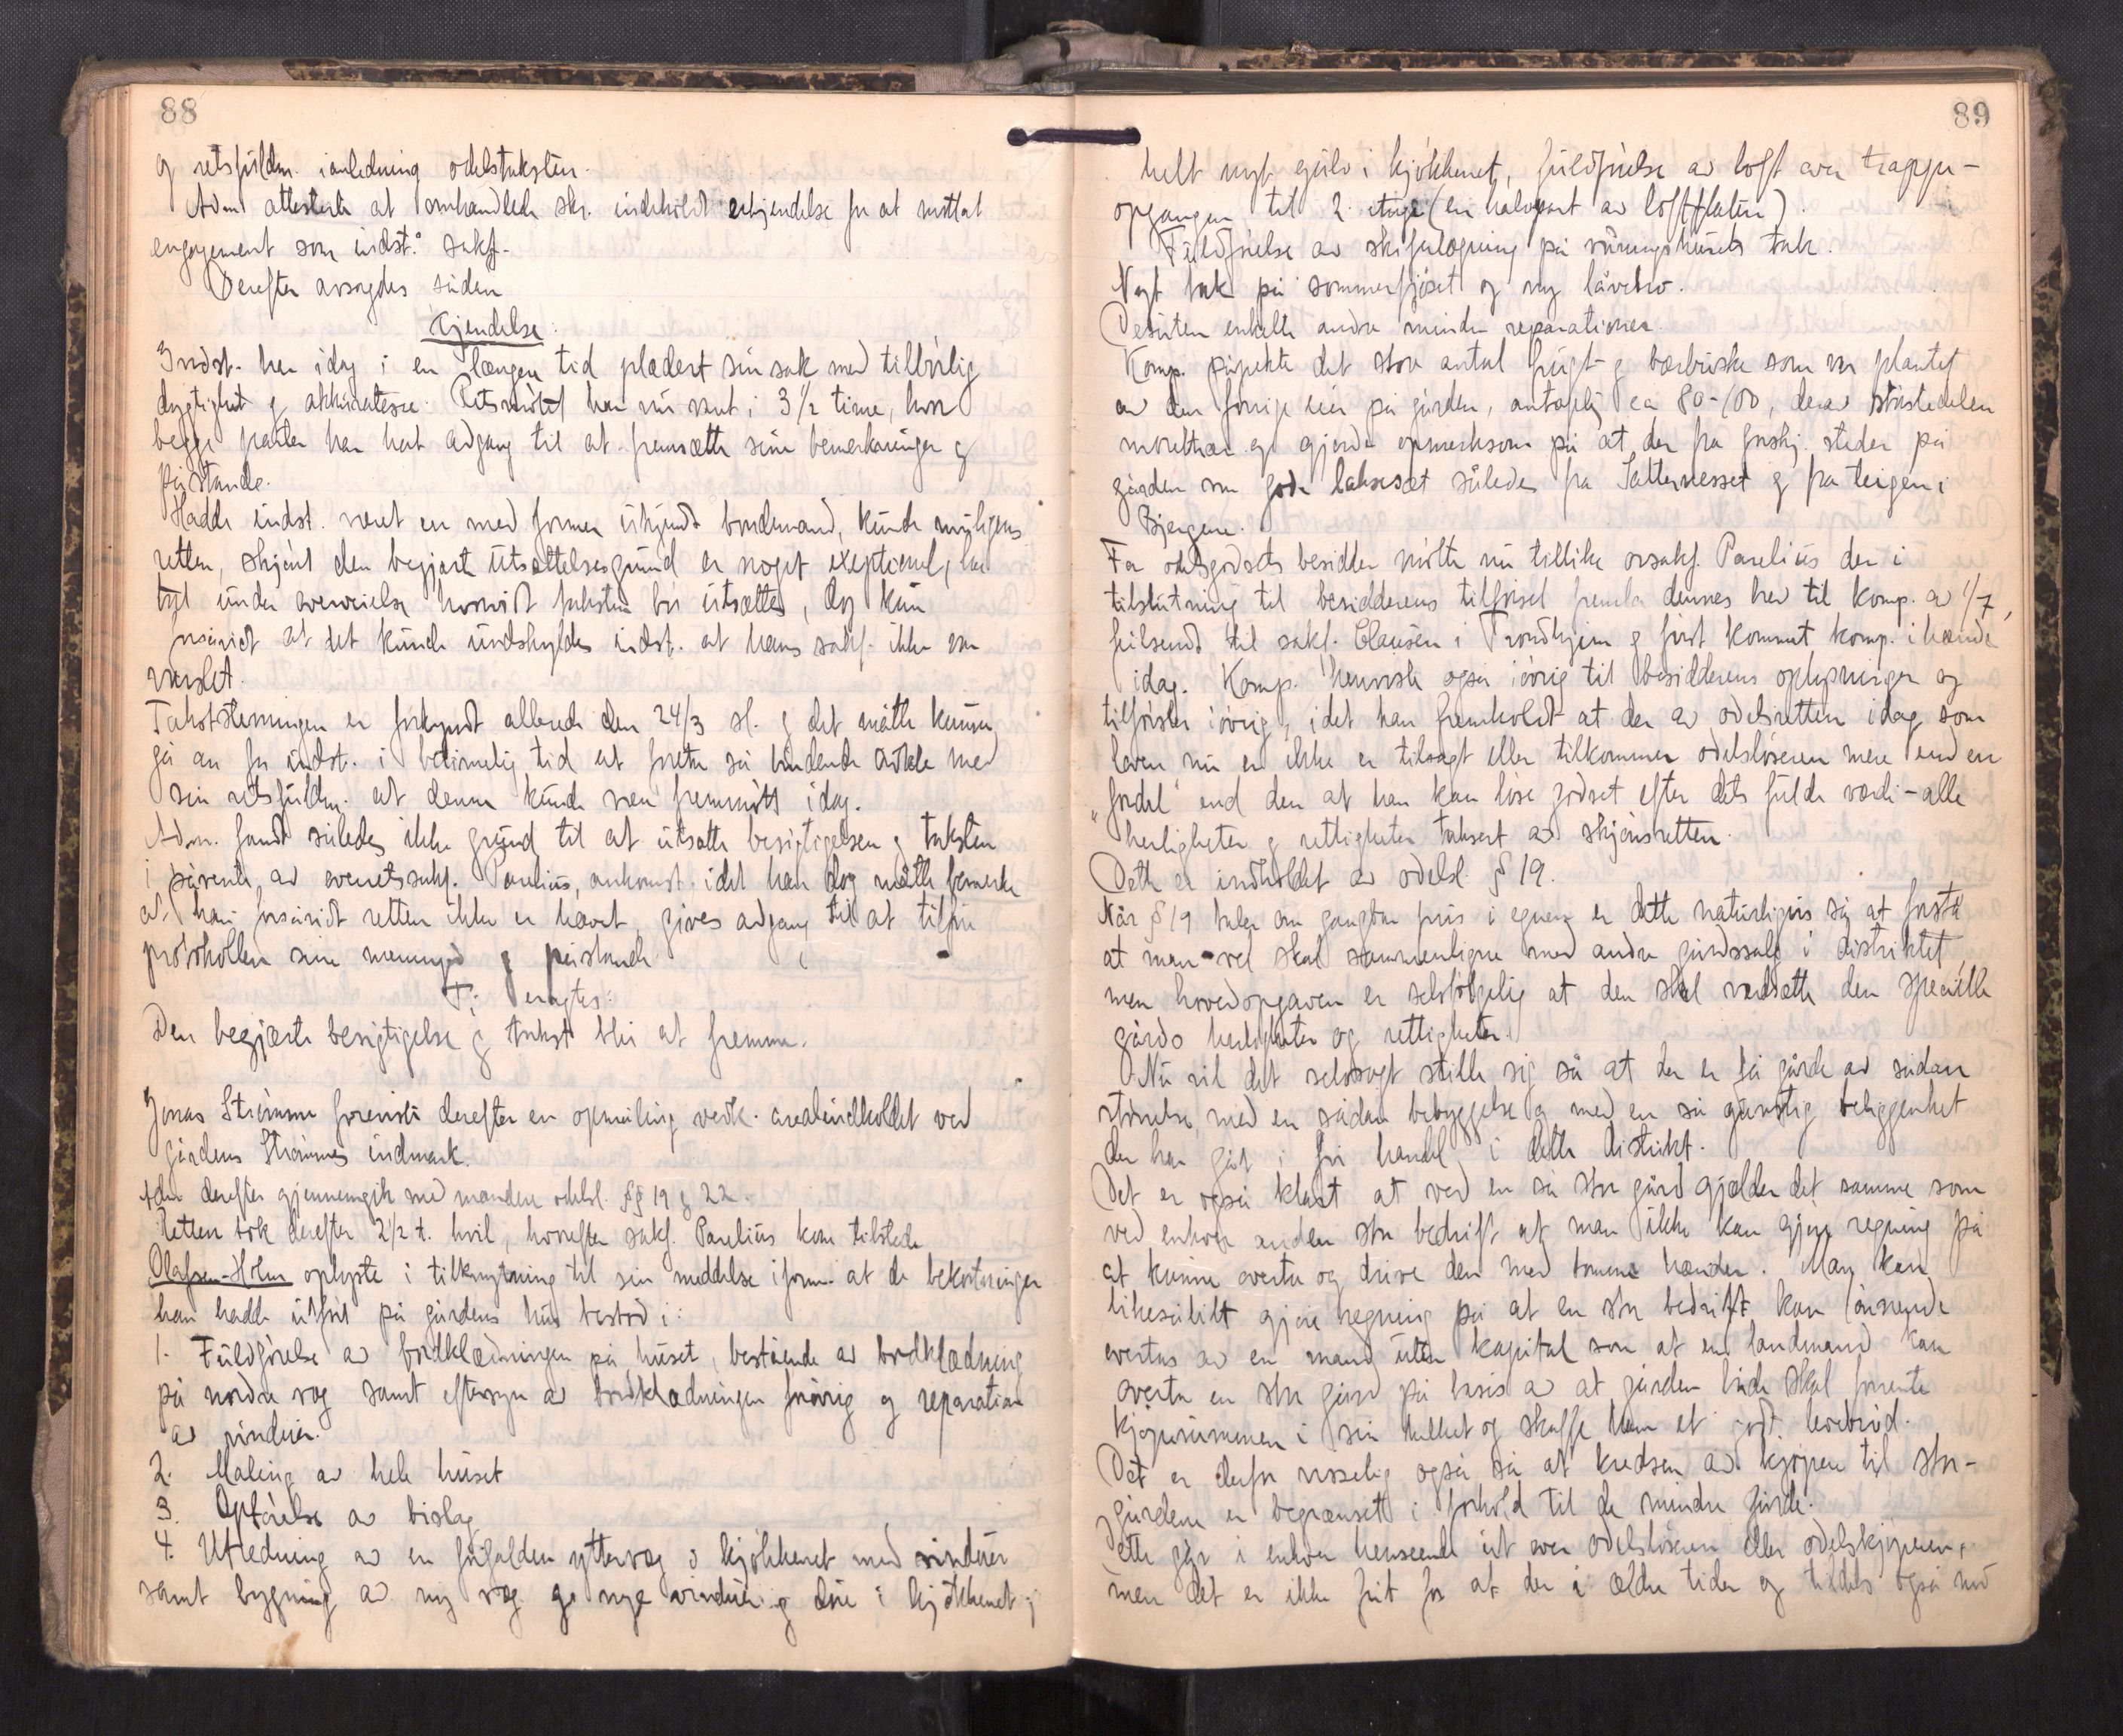 88
og retsfuldm. i anledning odelstaksten.
Adm. attesterte at omhandlede skr. indeholdt erkjendelse for at mottat
engagement som indst.s sakf.
Derefter avsagdes siden
Kjendelse:
Indst. har idag i en længere tid plædert sin sak med tilbørlig
dygtighet og akkuratesse. Retsmøtet har nu vart i 3 1/2 time, hvor
begge parter har hat adgang til at fremsætte sine bemerkninger og
påstande.
Hadde indst. været en med former ukjendt bondemand, kunde muligens
retten, skjønt den begjærte utsættelsesgrund er noget exeptionel, ha
tat under overveielse hvorvidt taksten bør utsættes, dog kun
såvidt at det kunde undskyldes indst. at hans sakf. ikke var
varslet.
Takststevningen er forkyndt allerede den 24/3 sl. og det måtte kunne
gå an for indst. i betimelig tid at foreta så bindende avtale med
sin retsfuldm. at denne kunde være fremmøtt idag.
Adm. fandt således ikke grund til at utsætte besigtigelsen og taksten
i påvente av overretssakf. Parelius' ankomst idet han dog måtte bemerke
at han forsåvidt retten ikke er hævet, gives adgang til at tilføre
protokollen sine meninger og påstande.
Ti eragtes:
Den begjærte besigtigelse og takst blir at fremme.
Jonas Strømme foreviste derefter en opmåling vedk. arealindholdet ved
gårdens Strømmes indmark.
Adm. derefter gjennemgik med mændene odelsl. §§ 19 og 22.
Retten tok derefter 2 1/2 t. hvil, hvorefter sakf. Parelius kom tilstede
Olafsen-Holm oplyste i tilknytning til sin meddelse iform. at de bekostninger
han hadde utført på gårdens hus bestod i:
1. Fuldførelse av bordklædningen på huset, bestående av bordklædning
på nordre væg samt eftersyn av bordklædningen forøvrig og reparation
av vinduer.
2. Maling av hele huset
3. Opførelse av bislag
4. Utredning av en forfalden yttervæg i kjøkkenet med vinduer
samt bygning av ny væg og nye vinduer og døre i kjøkkenet;
89
helt nyt gulv i kjøkkenet, fuldførelse av loft over trappe-
opgangen til 2. etage (en halvpart av loftflaten).
Fuldførelse av skiferlægning på våningshusets tak.
Nyt tak på sommerfjøset og ny låvebro.
Desuten enkelte andre mindre reparationer.
Komp. påpekte det store antal frugt- og bærbuske som var plantet
av den forrige eier på gården, antagelig ca 80-100, derav størstedelen
morelltrær og gjorde opmerksom på at der fra forskj. steder på
gården var gode laksesæt således fra Sætternesset og fra teigen i
Bjergene.
For odelsgodsets besidder møtte nu tillike orsakf. Parelius der i
tilslutning til besidderens tilførsel fremla dennes brev til komp. av 1/7,
feilsendt til sakf. Clausen i Trondhjem og først kommet komp. ihænde
idag. Komp. henviste også iøvrig til besidderens oplysninger og
tilførsler iøvrig, idet han fremholdt at der av odelsretten idag som
loven nu er ikke er tilsagt eller tilkommer odelsløseren mere end en
"fordel" end den at han kan løse godset efter dets fulde værdi - alle
herligheter og rettigheter taksert av skjønsretten.
Dette er indholdet av odelsl. § 19.
Når § 19 taler om gangbar pris i egnen er dette naturligvis så at forstå
at man vel skal sammenligne med andre gårdssalg i distriktet
men hovedopgaven er selvfølgelig at den skal verdsætte den specielle
gårds herligheter og rettigheter.
Nu vil det selvsagt stille sig så at der er få gårde av sådan
størrelse, med en sådan bebyggelse og med en så gunstig beliggenhet
der har gåt i fri handel i dette distrikt.
Det er også klart at ved en så stor gård gjælder det samme som
ved enhver anden stor bedrift at man ikke kan gjøre regning på
at kunne overta og drive den med tomme hænder. Man kan
likesålitt gjøre regning på at en stor bedrift kan lønnende
overtas av en mand uten kapital som at en landmand kan
overta en stor gård på basis av at gården både skal forrente
kjøpesummen i sin helhet og skaffe ham et godt levebrød.
Det er derfor visselig også så at kredsen av kjøpere til stor-
gårdene er begrænset i forhold til de mindre gårde.
Dette går i enhver henseende ut over odelsløseren eller odelskjøperen,
men det er ikke frit for at der i ældre tider og tildels også nu